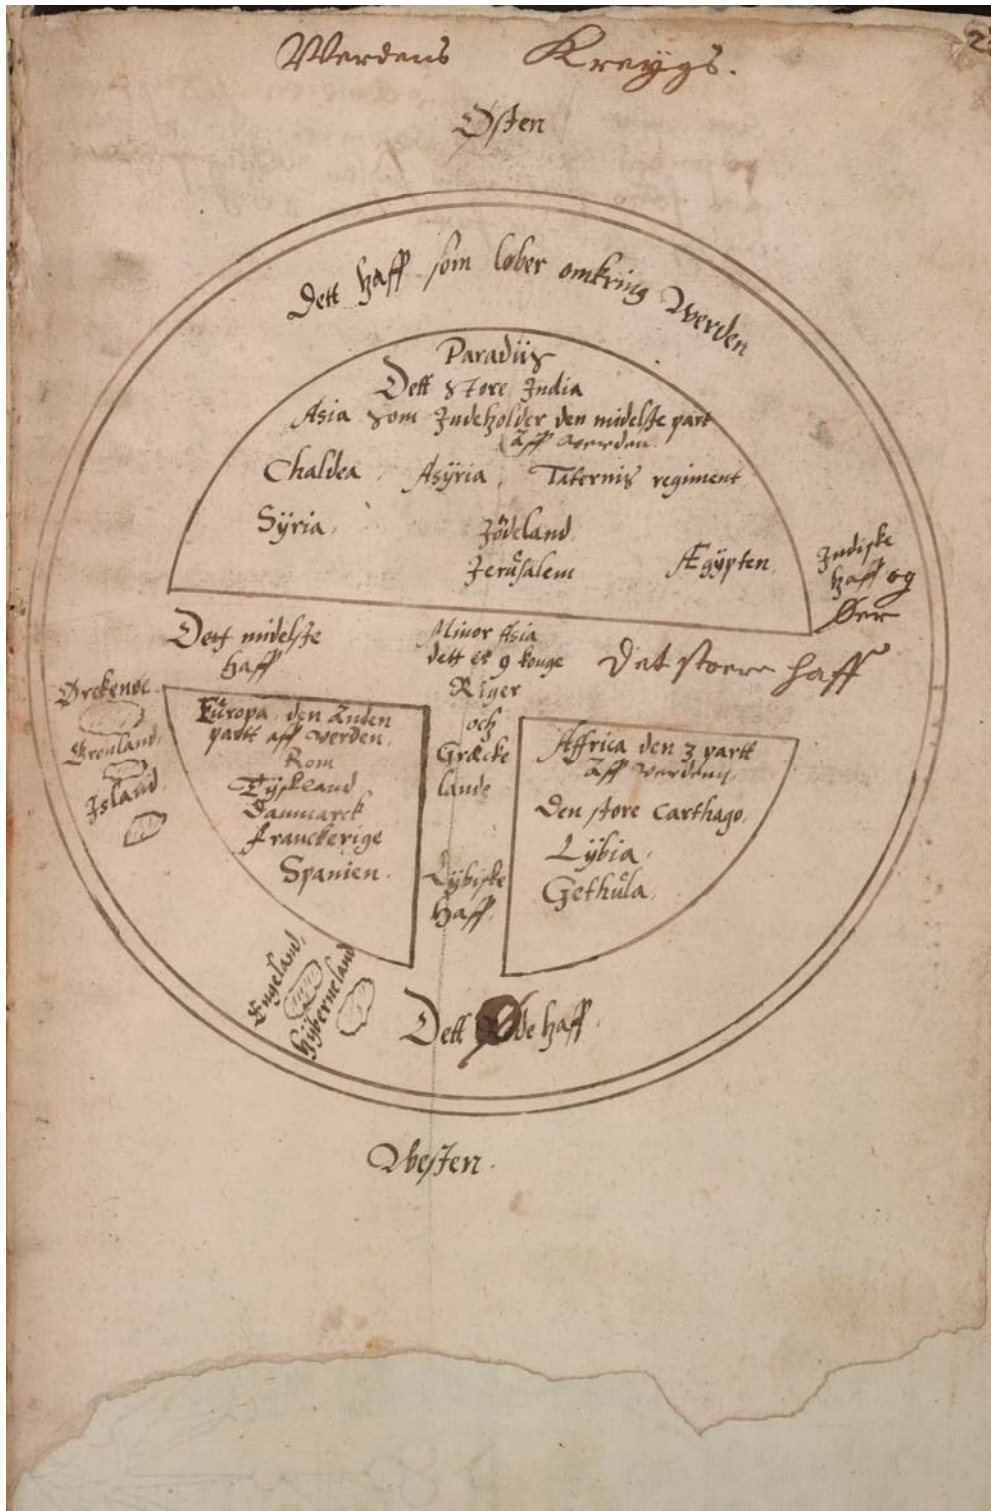 Werdens Kreÿgs.
2
Østen
Dett haff som løber omkring Werden
Paradiis
Dett Store India
Asia Som Indeholder den midelste part
aff werden.
Chaldea. Asÿria. Taternis regiment
Sÿria. Jödeland.
Jerusalem Ægÿpten.
Indiske
haff og
Øer
Dett midelste
haff
Minor Asia
dett er 9 konge
Riger
och
Græcke
lande
Det stoere haff
Ørckenøe.
Grønland.
Island.
Europa. den anden
partt aff werden.
Rom
Tÿskland
Danmarck
franckerige
Spanien.
Affrica den 3 partt
aff werdenn.
Den store Carthago.
Lÿbia.
Gethula.
Lÿbiske
Haff.
Engeland.
Hÿberneland
Dett øde haff.
Westen.